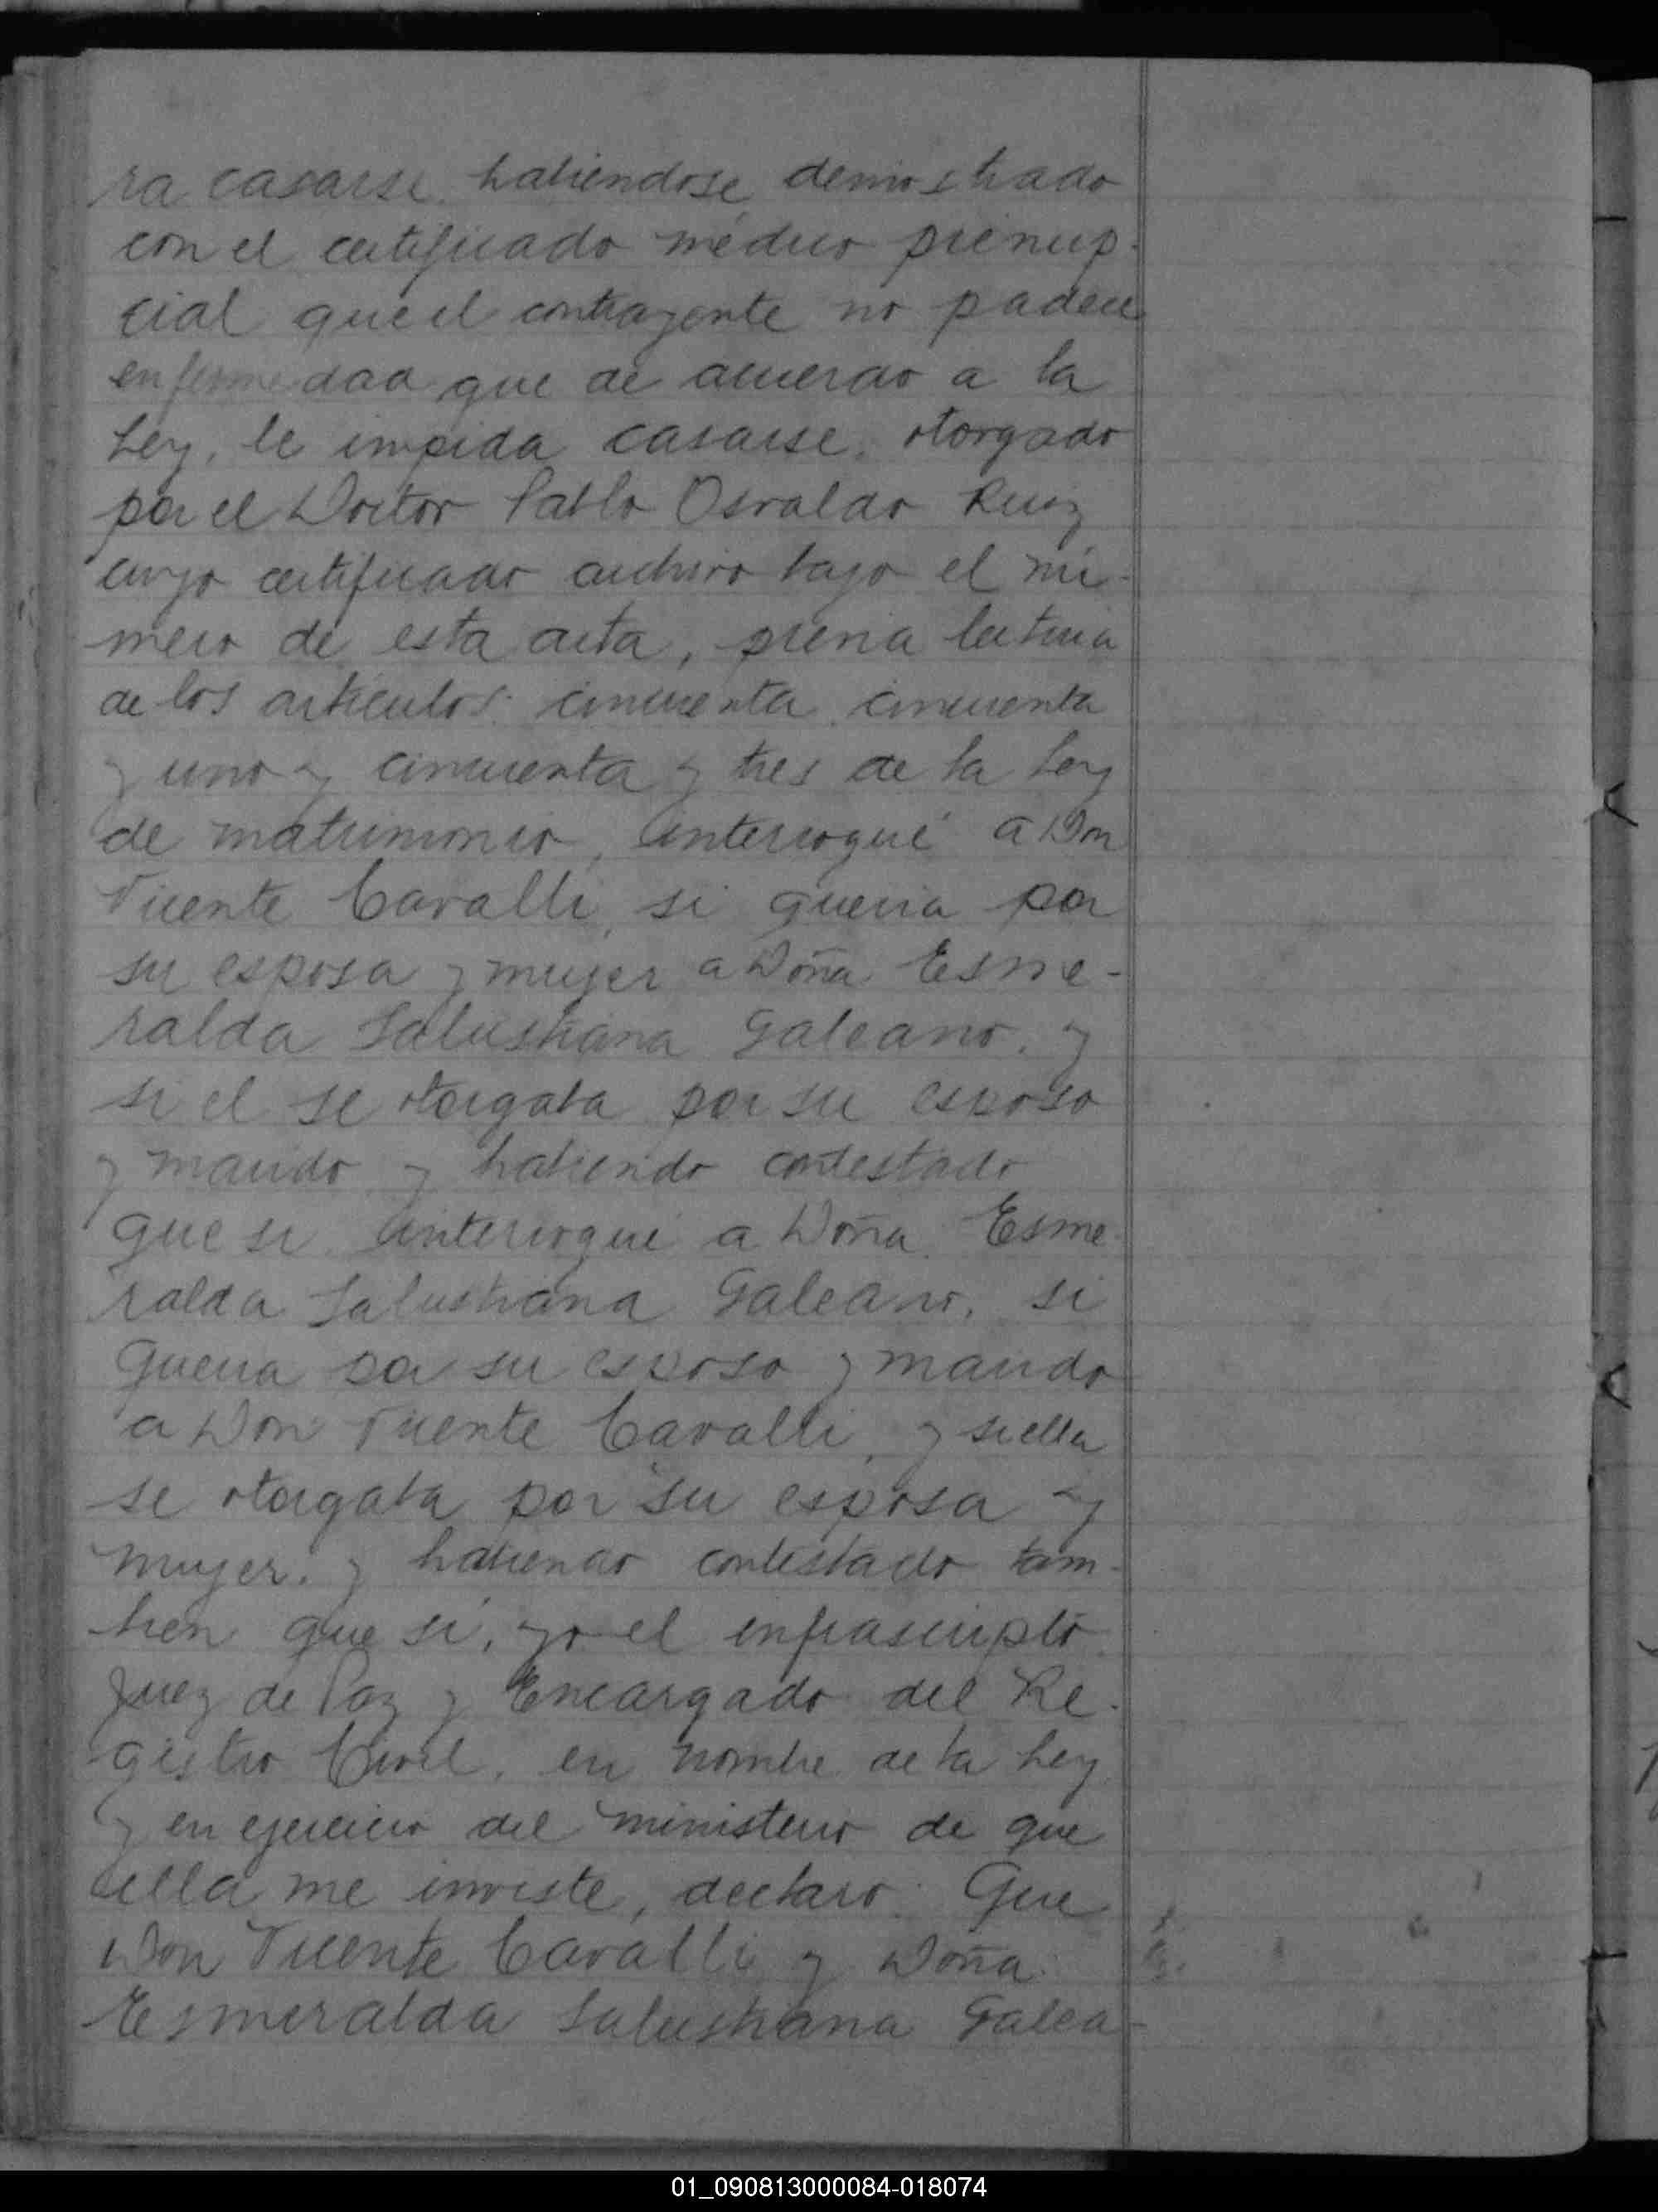 ra casarse, habiendose demostrado
con el certificado médico prenup-
cial que el contrayente no padece
enfermedad que de acuerdo a la
Ley, le impida casarse, otorgado
por el Doctor Pablo Osvaldo Ruiz
cuyo certificado archivo bajo el nú-
mero de esta acta, previa lectura
de los articulos: cincuenta, cincuenta
y uno y cincuenta y tres de la Ley
de matrimonio, interrogué a Don
Vicente Cavalli, si queria por
su esposa y mujer a Doña Esme-
ralda Salustiana Galeano, y
si el se otorgaba por su esposo
y marido, y habiendo contestado
que si, interrogué a Doña Esme-
ralda Salustiana Galeano, si
queria por su esposo y marido
a Don Vicente Cavalli, y si ella
se otorgaba por su esposa y
mujer, y habiendo contestado tam-
bien que sí, yo el infrascripto
Juez de Paz y Encargado del Re-
gistro Civil, en nombre de la Ley
y en ejercicio del ministerio de que
ella me inviste, declaro: Que
Don Vicente Cavalli y Doña
Esmeralda Salustiana Galea-
01_090813000084-018074